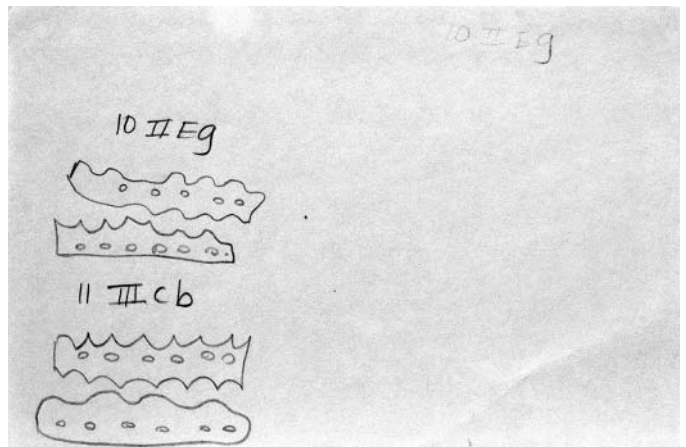 10 II Eg
10 II Eg
11 III Cb